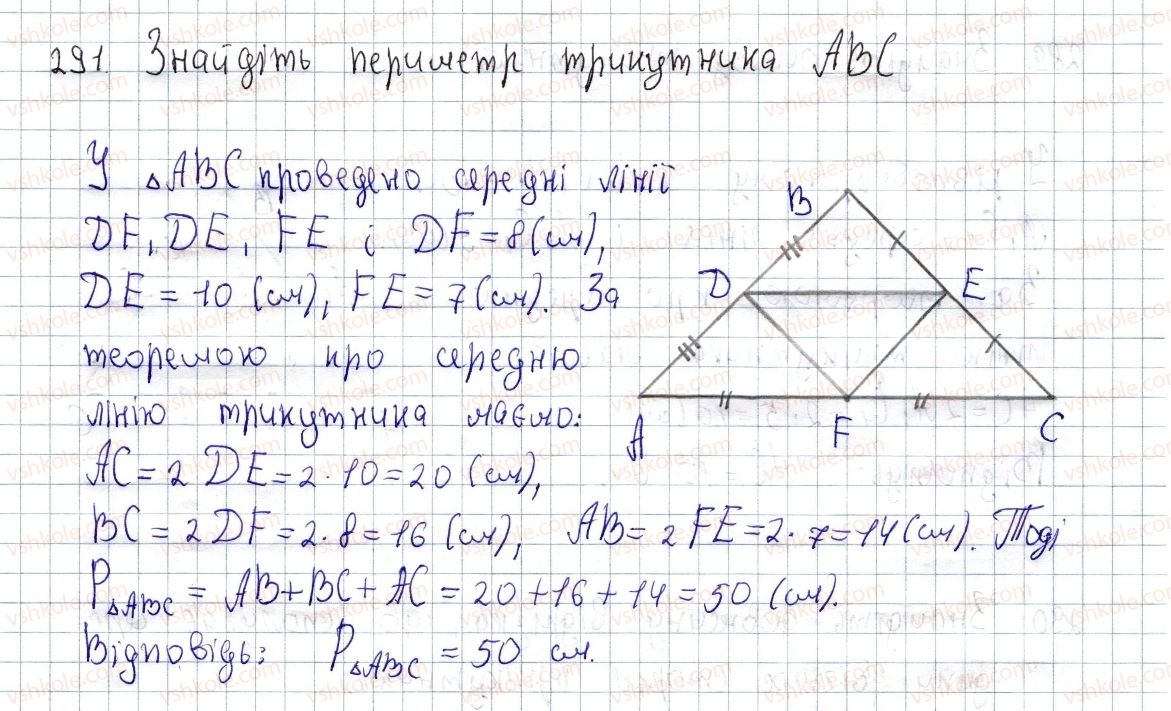 291. Знайдіть периметр трикутника ABC
У △ABC проведено середні лінії
DF, DE, FE і DF = 8 (см),
DE = 10 (см), FE = 7 (см). За
теоремою про середню
лінію трикутника маємо:
AC = 2 DE = 2 · 10 = 20 (см),
BC = 2 DF = 2 · 8 = 16 (см), AB = 2 FE = 2 · 7 = 14 (см). Тоді
P△ABC = AB + BC + AC = 20 + 16 + 14 = 50 (см).
Відповідь: P△ABC = 50 см.
B
D E
A F C
vshkole.com